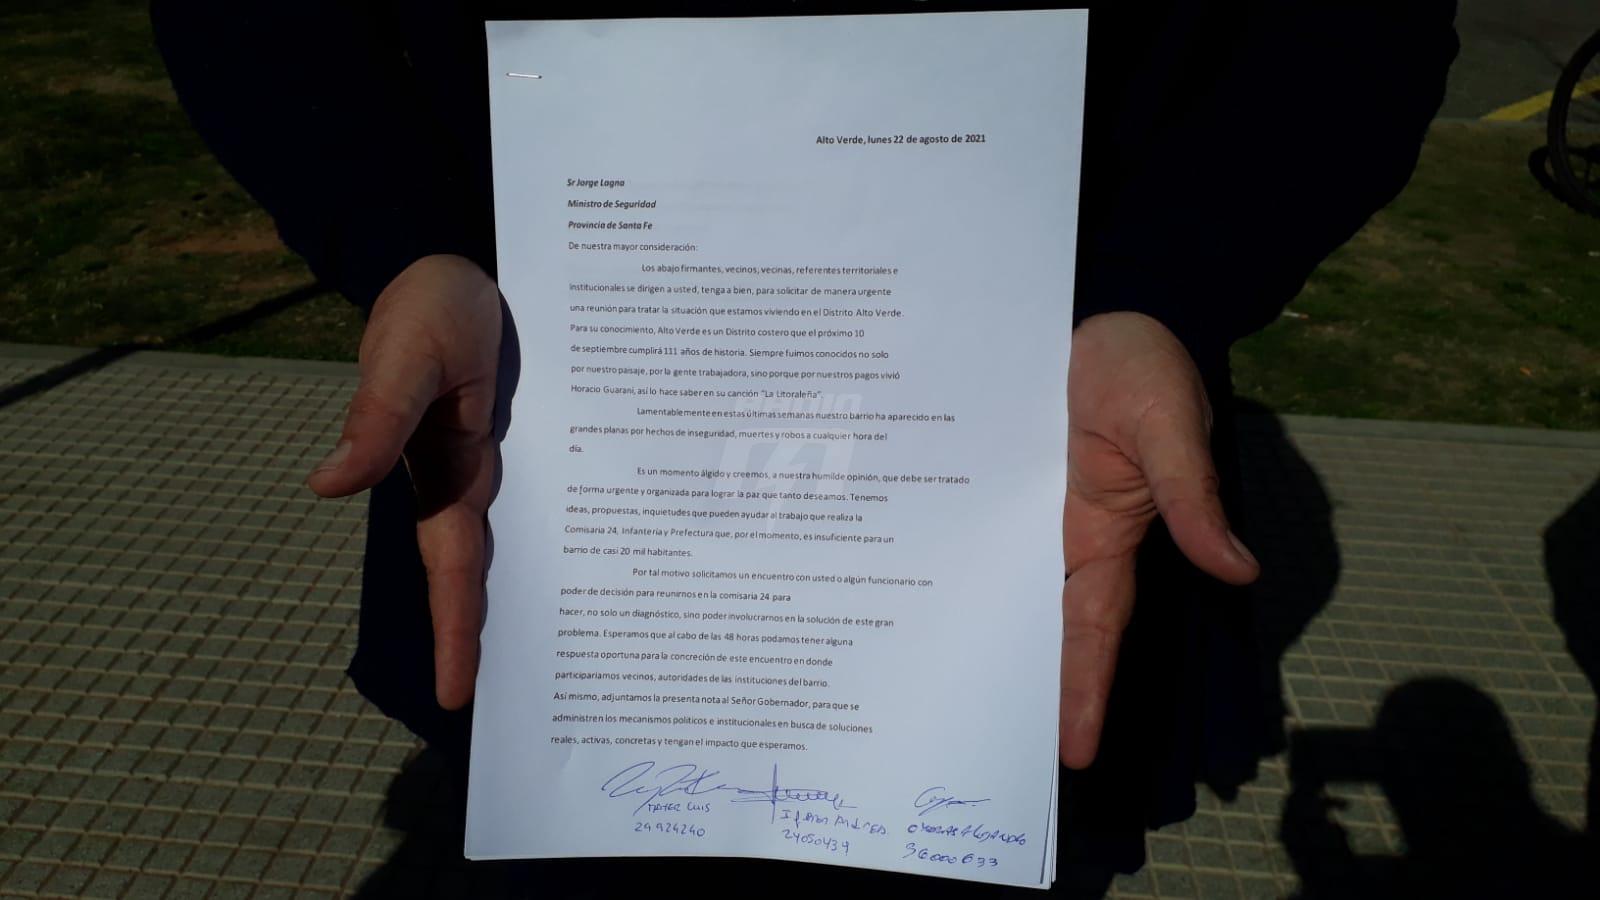 Alto Verde, lunes 22 de agosto de 2021
Sr Jorge Lagna
Ministro de Seguridad
Provincia de Santa Fe
De nuestra mayor consideración:
Los abajo firmantes, vecinos, vecinas, referentes territoriales e
institucionales se dirigen a usted, tenga a bien, para solicitar de manera urgente
una reunión para tratar la situación que estamos viviendo en el Distrito Alto Verde.
Para su conocimiento, Alto Verde es un Distrito costero que el próximo 10
de septiembre cumplirá 111 años de historia. Siempre fuimos conocidos no solo
por nuestro paisaje, por la gente trabajadora, sino porque por nuestros pagos vivió
Horacio Guarani, así lo hace saber en su canción "La Litoraleña".
RADIO
Lamentablemente en estas últimas semanas nuestro barrio ha aparecido en las
grandes planas por hechos de inseguridad, muertes y robos a cualquier hora del
día.
Es un momento álgido y creemos, a nuestra humilde opinión, que debe ser tratado
de forma urgente y organizada para lograr la paz que tanto deseamos. Tenemos
ideas, propuestas, inquietudes que pueden ayudar al trabajo que realiza la
Comisaria 24, Infantería y Prefectura que, por el momento, es insuficiente para un
barrio de casi 20 mil habitantes.
Por tal motivo solicitamos un encuentro con usted o algún funcionario con
poder de decisión para reunirnos en la comisaria 24 para
hacer, no solo un diagnóstico, sino poder involucrarnos en la solución de este gran
problema. Esperamos que al cabo de las 48 horas podamos tener alguna
respuesta oportuna para la concreción de este encuentro en donde
participaríamos vecinos, autoridades de las instituciones del barrio.
Así mismo, adjuntamos la presenta nota al Señor Gobernador, para que se
administren los mecanismos políticos e institucionales en busca de soluciones
reales, activas, concretas y tengan el impacto que esperamos.
LUIS
29924240
24050439
36000633